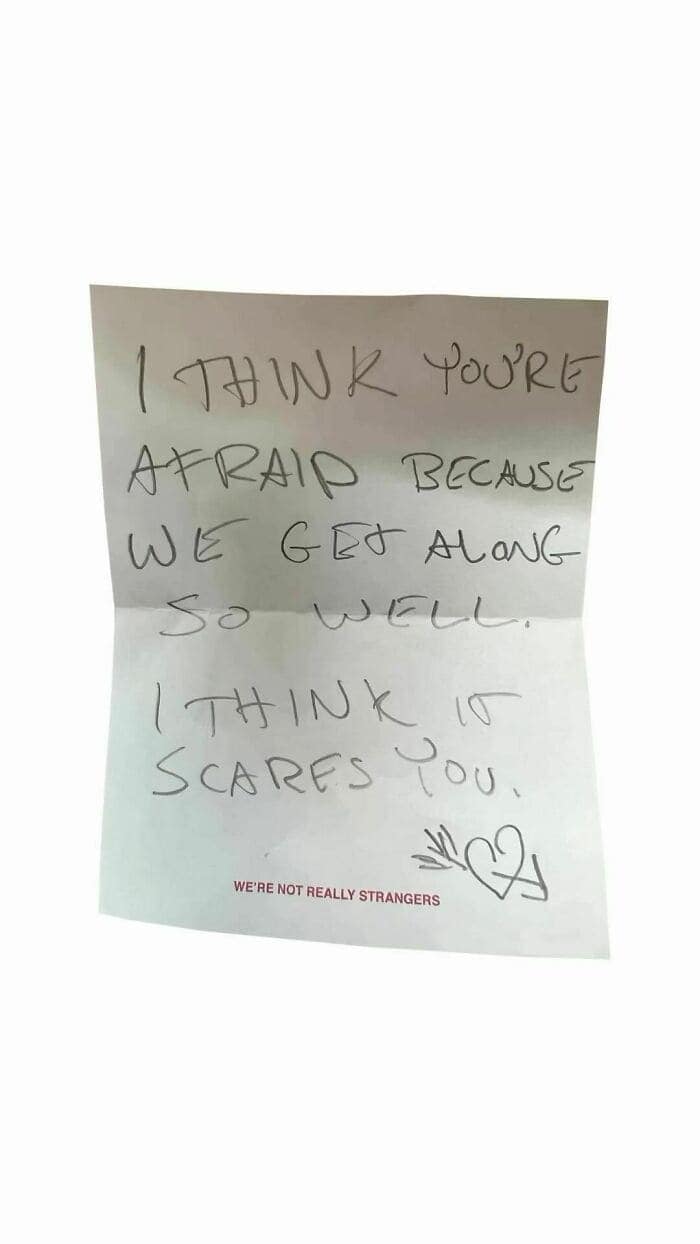 I THINK YOU'RE
AFRAID BECAUSE
WE GET ALONG
SO WELL.
I THINK IT
SCARES YOU.
WE'RE NOT REALLY STRANGERS